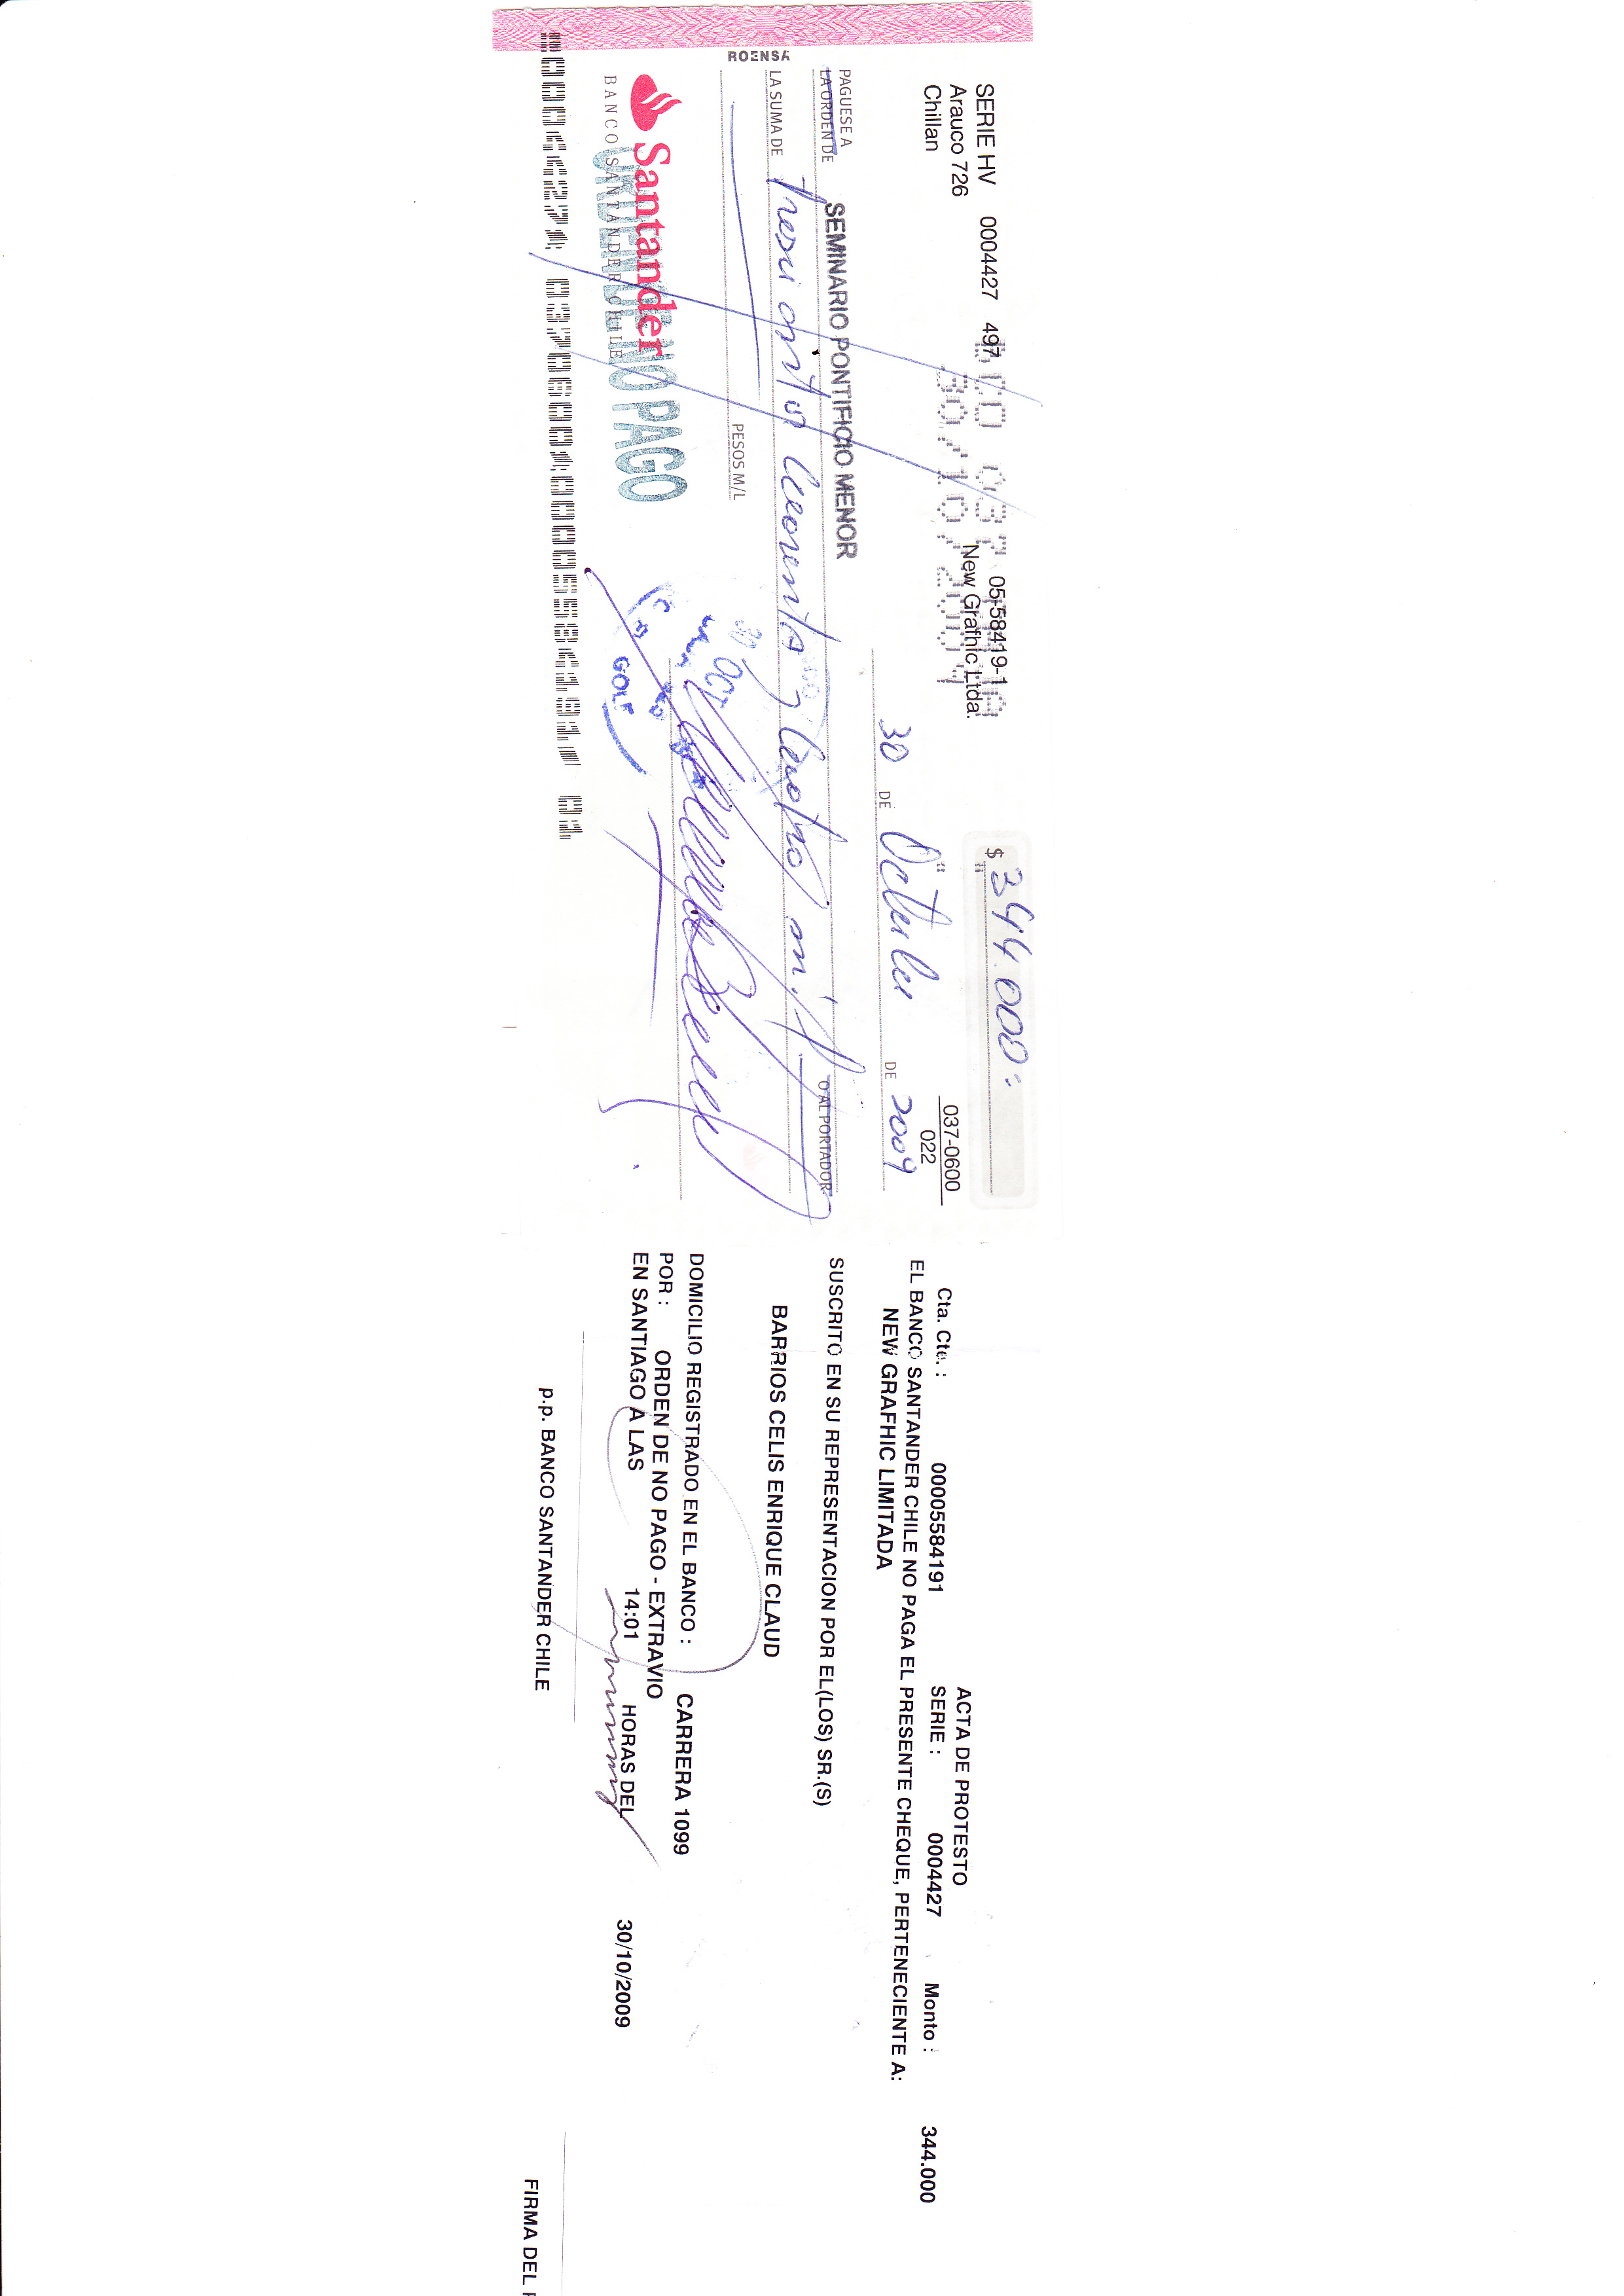 SERIE HV 0004427 497 05-58419-1
Arauco 726 New Grafhic Ltda.
Chillan
$ 344.000=
037-0600
022
30 DE Octubre DE 2009
PAGUESE A
LA ORDEN DE SEMINARIO PONTIFICIO MENOR O AL PORTADOR
LA SUMA DE Trescientos Cuarenta y Cuatro mil
PESOS M/L
ROENSA
Santander
BANCO SANTANDER CHILE
ORDEN NO PAGO
30 OCT
GOLF
ACTA DE PROTESTO
Cta. Cte. : 00005584191 SERIE : 0004427 Monto : 344.000
EL BANCO SANTANDER CHILE NO PAGA EL PRESENTE CHEQUE, PERTENECIENTE A:
NEW GRAFHIC LIMITADA
SUSCRITO EN SU REPRESENTACION POR EL(LOS) SR.(S)
BARRIOS CELIS ENRIQUE CLAUD
DOMICILIO REGISTRADO EN EL BANCO : CARRERA 1099
POR : ORDEN DE NO PAGO - EXTRAVIO
EN SANTIAGO A LAS 14:01 HORAS DEL 30/10/2009
p.p. BANCO SANTANDER CHILE
FIRMA DEL